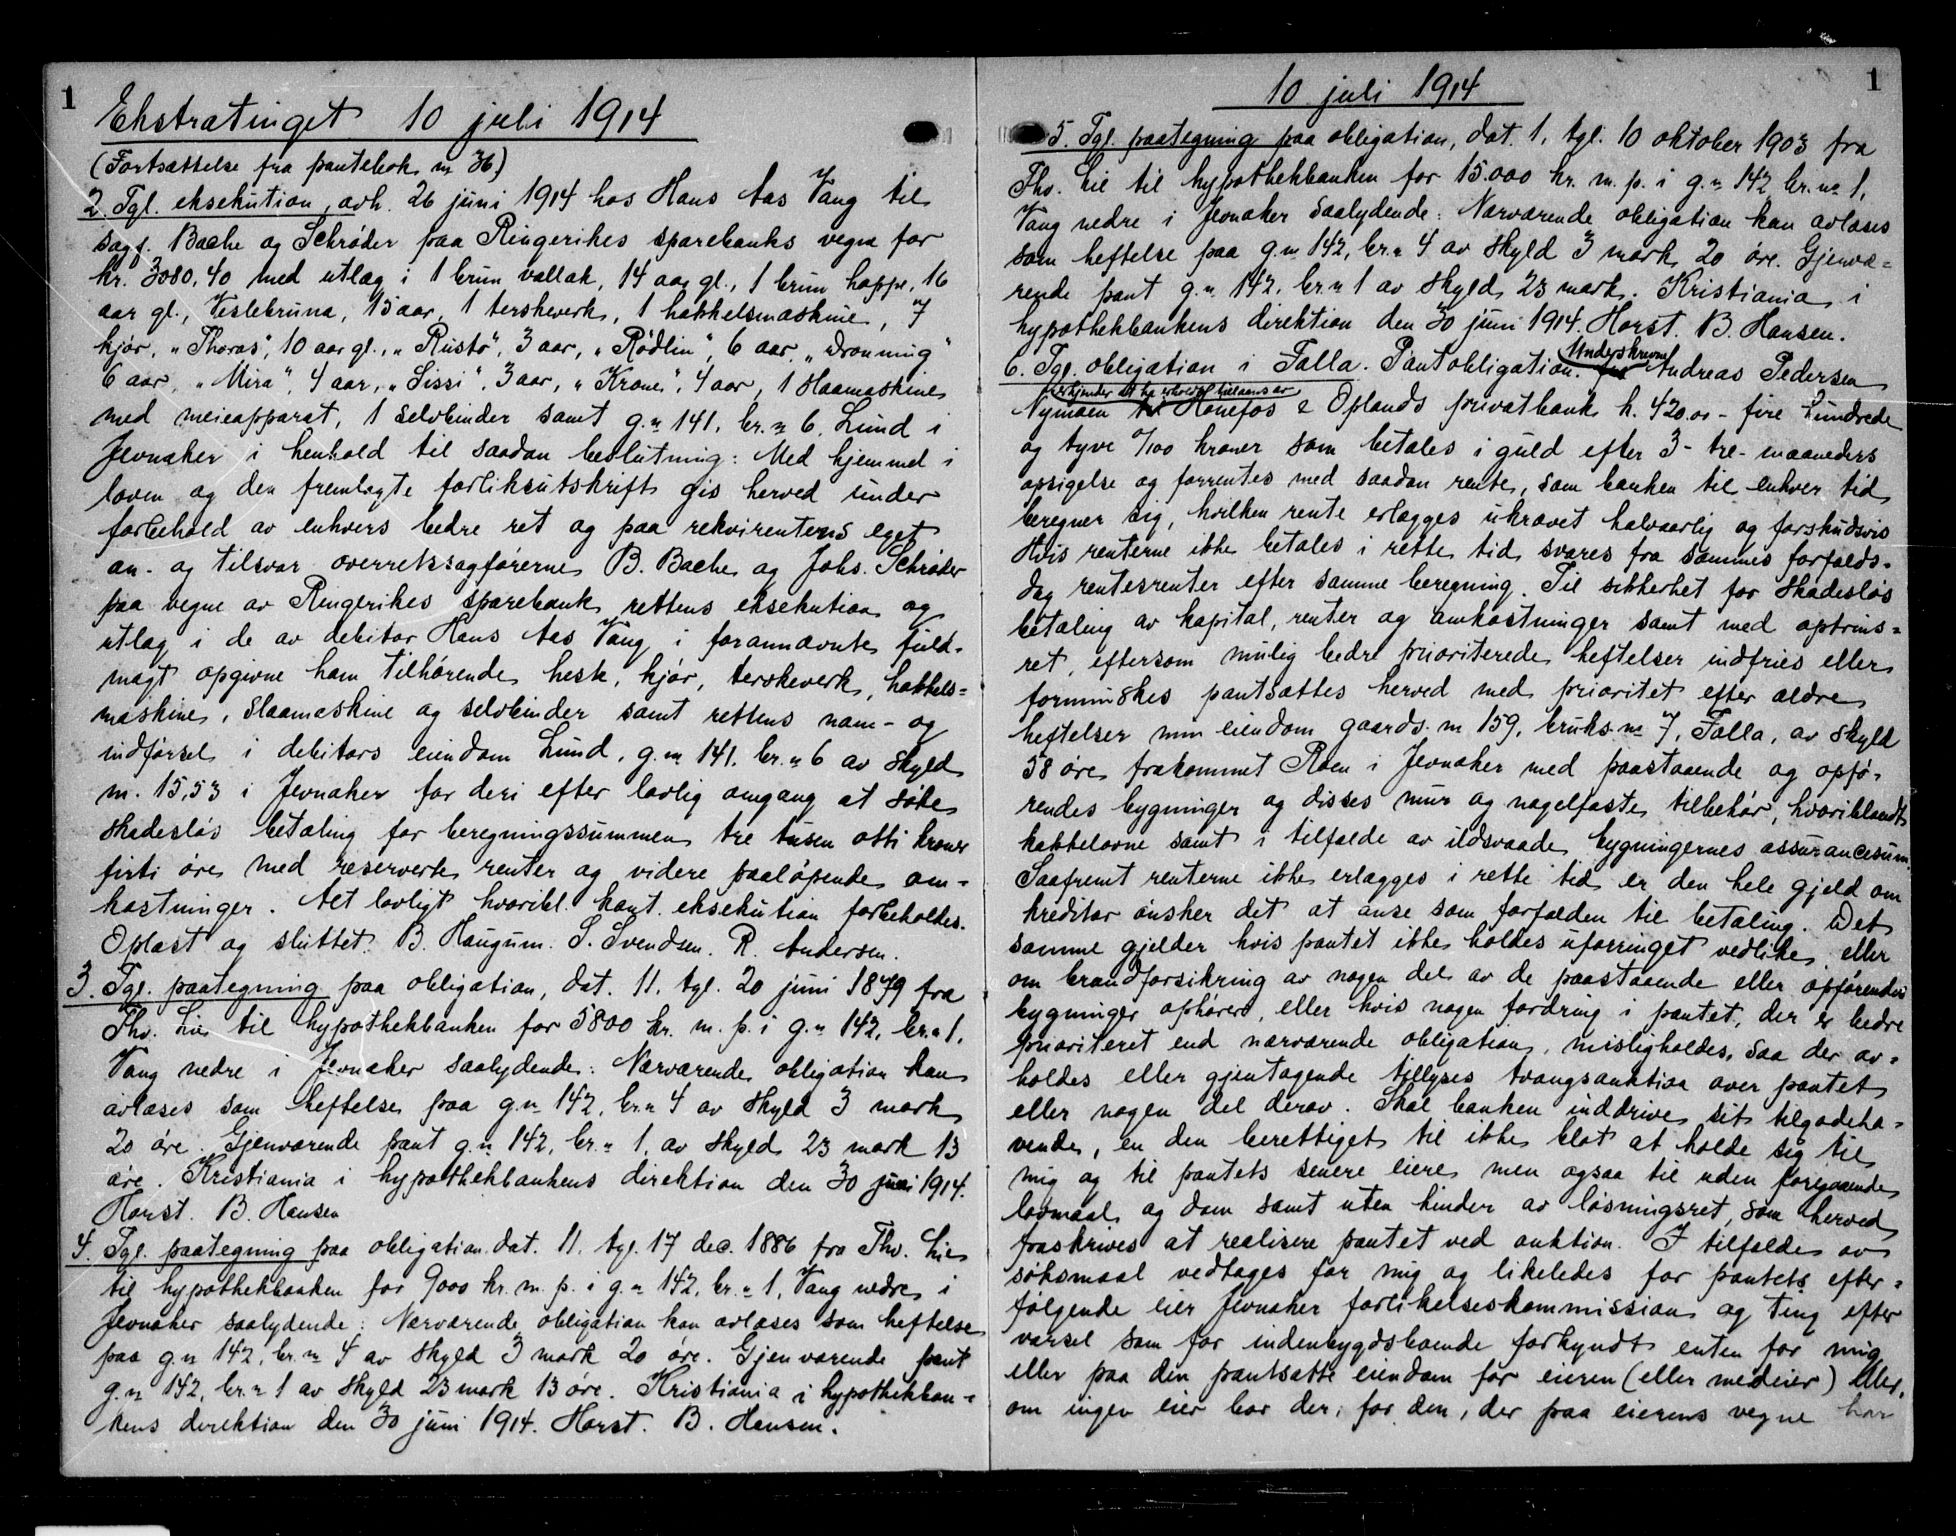 1
Ekstratinget 10 juli 1914
(Fortsættelse fra pantebok nr 36)
2. Tgl. eksekution, avh. 26 juni 1914 hos Hans Aas Vang til
sagf. Bache og Schrøder paa Ringerikes sparebanks vegne for
kr. 3080,40 med utlæg i 1 brun vallak, 14 aar gl., 1 brun hoppe, 16
aar gl., Veslebruna, 15 aar, 1 terskeverk, 1 hakkelsmaskine, 7
kjør, "Thoras", 10 aar gl., "Rustø", 3 aar, "Rødlin", 6 aar, "Dronning"
6 aar, "Mira", 4 aar, "Sissi", 3 aar, "Krone", 4 aar, 1 slaamaskine
med meieapparat, 1 selvbinder samt g.nr 141, br.nr 6, Lund i
Jevnaker i henhold til saadan beslutning: Med hjemmel i
loven og den fremlagte forliksutskrift gis herved under
forbehold av enhvers bedre ret og paa rekvirentens eget
an- og tilsvar overretssagførerne B. Bache og Johs. Schrøder
paa vegne av Ringerikes sparebank rettens eksekution og
utlæg i de av debitor Hans Aas Vang i forannævnte fuld-
magt opgivne ham tilhørende hest, kjør, terskeverk, hakkels-
maskine, slaamaskine og selvbinder samt rettens nam- og
indførsel i debitors eiendom Lund, g.nr 141, br.nr 6 av skyld
m. 15,53 i Jevnaker for deri efter lovlig omgang at søke
skadesløs betaling for beregningssummen tre tusen otti kroner
firti øre med reserverte renter og videre paaløpende om-
kostninger. Alt lovligt hvoribl. kont. eksekution forbeholdes.
Oplæst og sluttet. B. Haugum. S. Svendsen. R. Andersen.
3. Tgl. paategning paa obligation, dat. 11. tgl. 20 juni 1879 fra
Thv. Lie til hypothekbanken for 5800 kr. m. p. i g.nr 142, br.nr 1,
Vang nedre i Jevnaker saalydende: Nærværende obligation kan
avlæses som heftelse paa g.nr 142, br.nr 4 av skyld 3 mark
20 øre. Gjenværende pant g.nr 142, br.nr 1, av skyld 23 mark 13
øre. Kristiania i hypothekbankens direktion den 30 juni 1914.
Horst. B. Hansen
4. Tgl. paategning paa obligation dat. 11. tgl. 17 dec. 1886 fra Thv. Lie
til hypothekbanken for 9000 kr. m. p. i g.nr 142, br.nr 1, Vang nedre i
Jevnaker saalydende: Nærværende obligation kan avlæses som heftelse
paa g.nr 142, br.nr 4 av skyld 3 mark 20 øre. Gjenværende pant
g.nr 142, br.nr 1 av skyld 23 mark 13 øre. Kristiania i hypothekban-
kens direktion den 30 juni 1914. Horst. B. Hansen.
10 juli 1914
1
5. Tgl. paategning paa obligation, dat. 1, tgl. 10 oktober 1903 fra
Thv. Lie til hypothekbanken for 15.000 kr. m. p. i g.nr 142 br.nr 1,
Vang nedre i Jevnaker saalydende: Nærværende obligation kan avlæses
som heftelse paa g.nr 142, br.nr 4 av skyld 3 mark 20 øre. Gjenvæ-
rende pant g.nr 142, br.nr 1 av skyld 23 mark. Kristiania i
hypothekbankens direktion den 30 juni 1914. Horst. B. Hansen.
6. Tgl. obligation i Falla. Pantobligation. Underskrevne Andreas Pedersen
erkjender at ha erholdt tillaans av
Nymoen Hønefos & Oplands privatbank k. 420.00 - fire hundrede
og tyve 0/100 kroner som betales i guld efter 3 - tre - maaneders
opsigelse og forrentes med saadan rente, som banken til enhver tid
beregner sig, hvilken rente erlægges ukrævet halvaarlig og forskudsvis
Hvis renterne ikke betales i rette tid svares fra sammes forfalds-
dag rentesrenter efter samme beregning. Til sikkerhet for skadesløs
betaling av kapital, renter og omkostninger samt med optrins-
ret, eftersom mulig bedre prioriterede heftelser indfries eller
forminskes pantsættes herved med prioritet efter ældre
heftelser min eiendom gaards nr 159, bruks nr 7, Falla, av skyld
58 øre frakommet Roen i Jevnaker med paastaaende og opfø-
rendes bygninger og disses mur og nagelfaste tilbehør, hvoriblandt
kakkelovne samt i tilfælde av ildsvaade bygningernes assurancesum.
Saafremt renterne ikke erlægges i rette tid er den hele gjeld om
kreditor ønsker det at anse som forfalden til betaling. Det
samme gjelder hvis pantet ikke holdes uforringet vedlike, eller
om brandforsikring av nogen del av de paastaaende eller opførendes
bygninger ophører, eller hvis nogen fordring i pantet, der er bedre
prioriteret end nærværende obligation, misligholdes, saa der av-
holdes eller gjentagende tillyses tvangsauktion over pantet
eller nogen del derav. Skal banken inddrive sit tilgodeha-
vende, en den berettiget til ikke blot at holde sig til
mig og til pantets senere eiere men ogsaa til uden foregaaende
lovmaal og dom samt uten hinder av løsningsret, som herved
fraskrives at realisere pantet ved auktion. I tilfælde av
søksmaal vedtages for mig og likeledes for pantets efter-
følgende eier Jevnaker forlikelseskommission og ting efter
varsel som for indenbygdsboende forkyndt enten for mig
eller paa den pantsatte eiendom for eieren (eller medeier) eller,
om ingen eier bor der, for den, der paa eierens vegne har